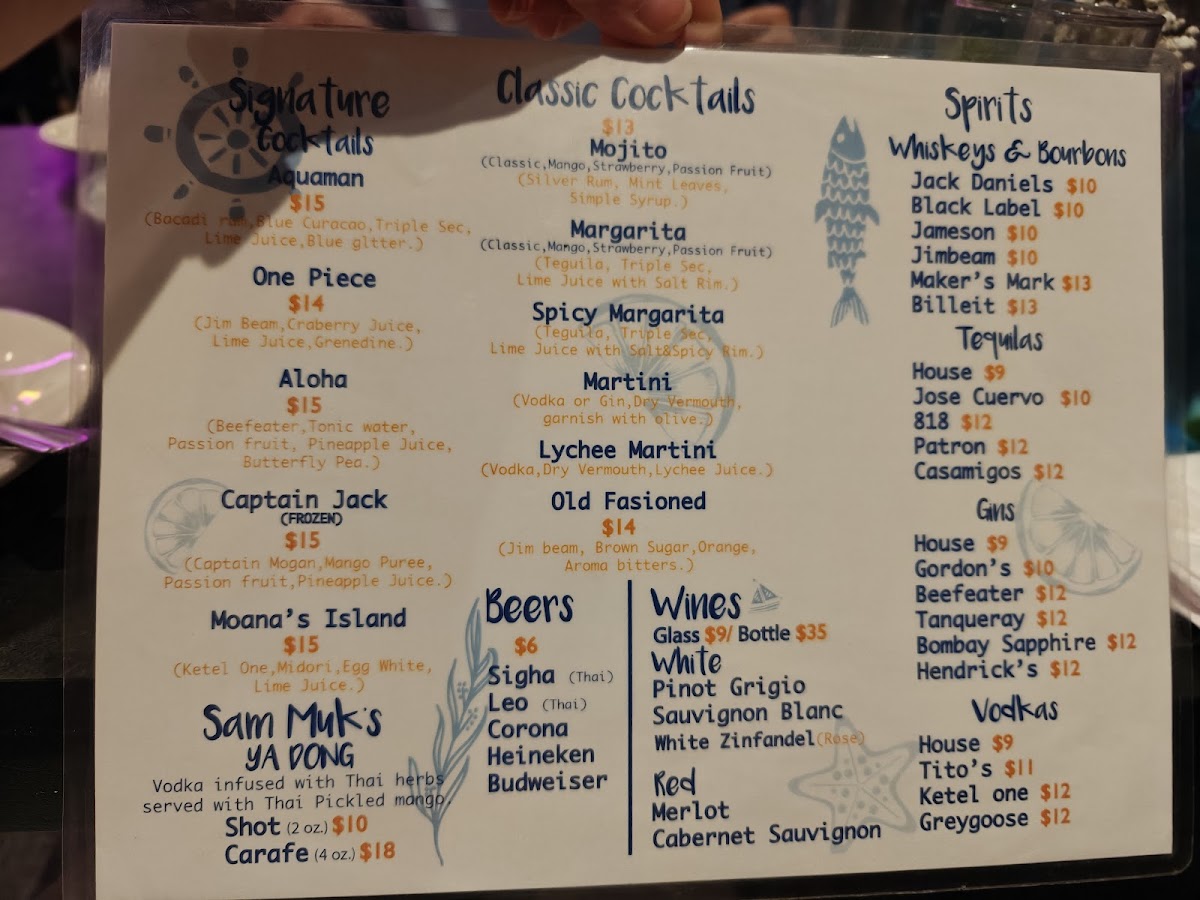 Signature
Cocktails
Aquaman
$15
(Bacadi rum,Blue Curacao,Triple Sec,
Lime Juice,Blue gltter.)
One Piece
$14
(Jim Beam,Craberry Juice,
Lime Juice,Grenedine.)
Aloha
$15
(Beefeater,Tonic water,
Passion fruit, Pineapple Juice,
Butterfly Pea.)
Captain Jack
(FROZEN)
$15
(Captain Mogan,Mango Puree,
Passion fruit,Pineapple Juice.)
Moana's Island
$15
(Ketel One,Midori,Egg White,
Lime Juice.)
Sam Muk's
YA DONG
Vodka infused with Thai herbs
served with Thai Pickled mango.
Shot (2 oz.) $10
Carafe (4 oz.) $18
Classic Cocktails
$13
Mojito
(Classic,Mango,Strawberry,Passion Fruit)
(Silver Rum, Mint Leaves,
Simple Syrup.)
Margarita
(Classic,Mango,Strawberry,Passion Fruit)
(Teguila, Triple Sec,
Lime Juice with Salt Rim.)
Spicy Margarita
(Teguila, Triple Sec,
Lime Juice with Salt&Spicy Rim.)
Martini
(Vodka or Gin,Dry Vermouth,
garnish with olive.)
Lychee Martini
(Vodka,Dry Vermouth,Lychee Juice.)
Old Fasioned
$14
(Jim beam, Brown Sugar,Orange,
Aroma bitters.)
Beers
$6
Sigha (Thai)
Leo (Thai)
Corona
Heineken
Budweiser
Wines
Glass $9/ Bottle $35
White
Pinot Grigio
Sauvignon Blanc
White Zinfandel(Rose)
Red
Merlot
Cabernet Sauvignon
Spirits
Whiskeys & Bourbons
Jack Daniels $10
Black Label $10
Jameson $10
Jimbeam $10
Maker's Mark $13
Billeit $13
Tequilas
House $9
Jose Cuervo $10
818 $12
Patron $12
Casamigos $12
Gins
House $9
Gordon's $10
Beefeater $12
Tanqueray $12
Bombay Sapphire $12
Hendrick's $12
Vodkas
House $9
Tito's $11
Ketel one $12
Greygoose $12